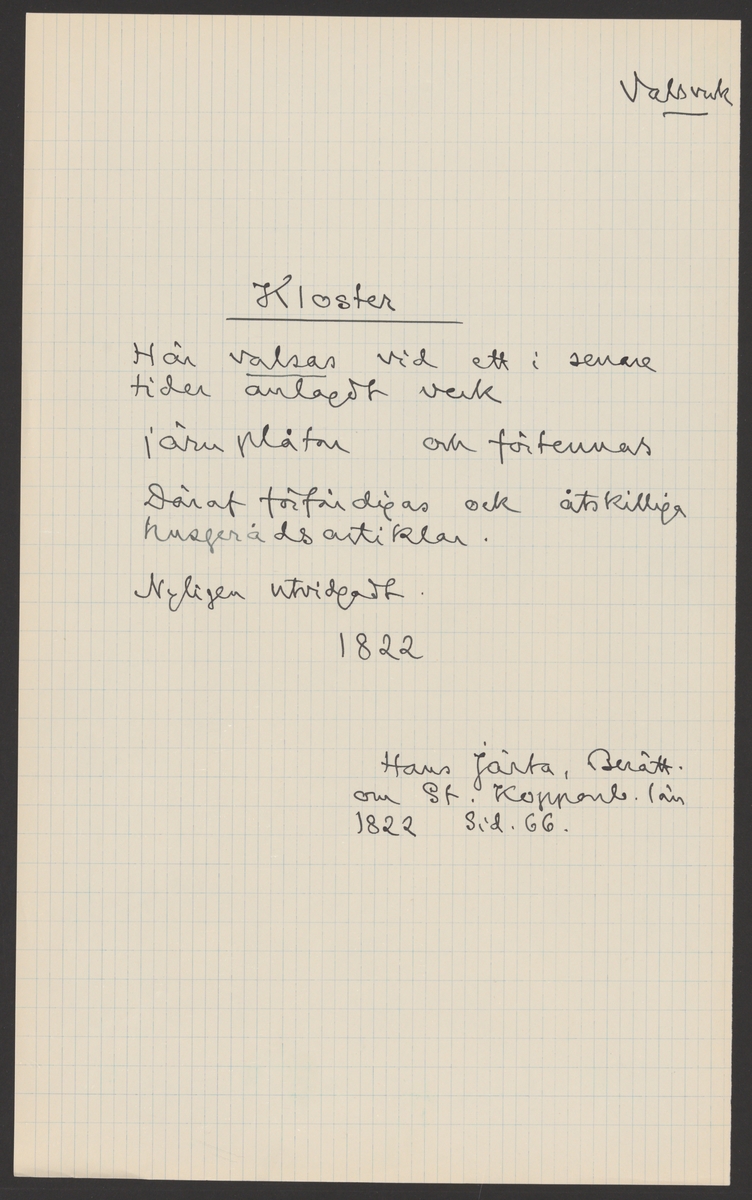 Valsverk
Kloster
Här valsas vid ett i senare
tider anlagdt verk
järnplåtar och förtennas
Däraf förfärdigas ock åtskilliga
husgerådsartiklar.
Nyligen utvidgadt.
1822
Hans Järta, Berätt.
om St. Kopparb. län
1822 Sid. 66.